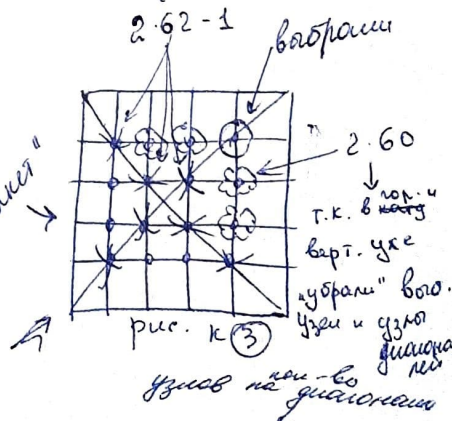 2·62-1
выбрали
2·60
т.к. в гор. и
верт. уже
"убрали" выб.
узел и узлы
диагона
лей
рис. к ③
кол-во
узлов на диагонали